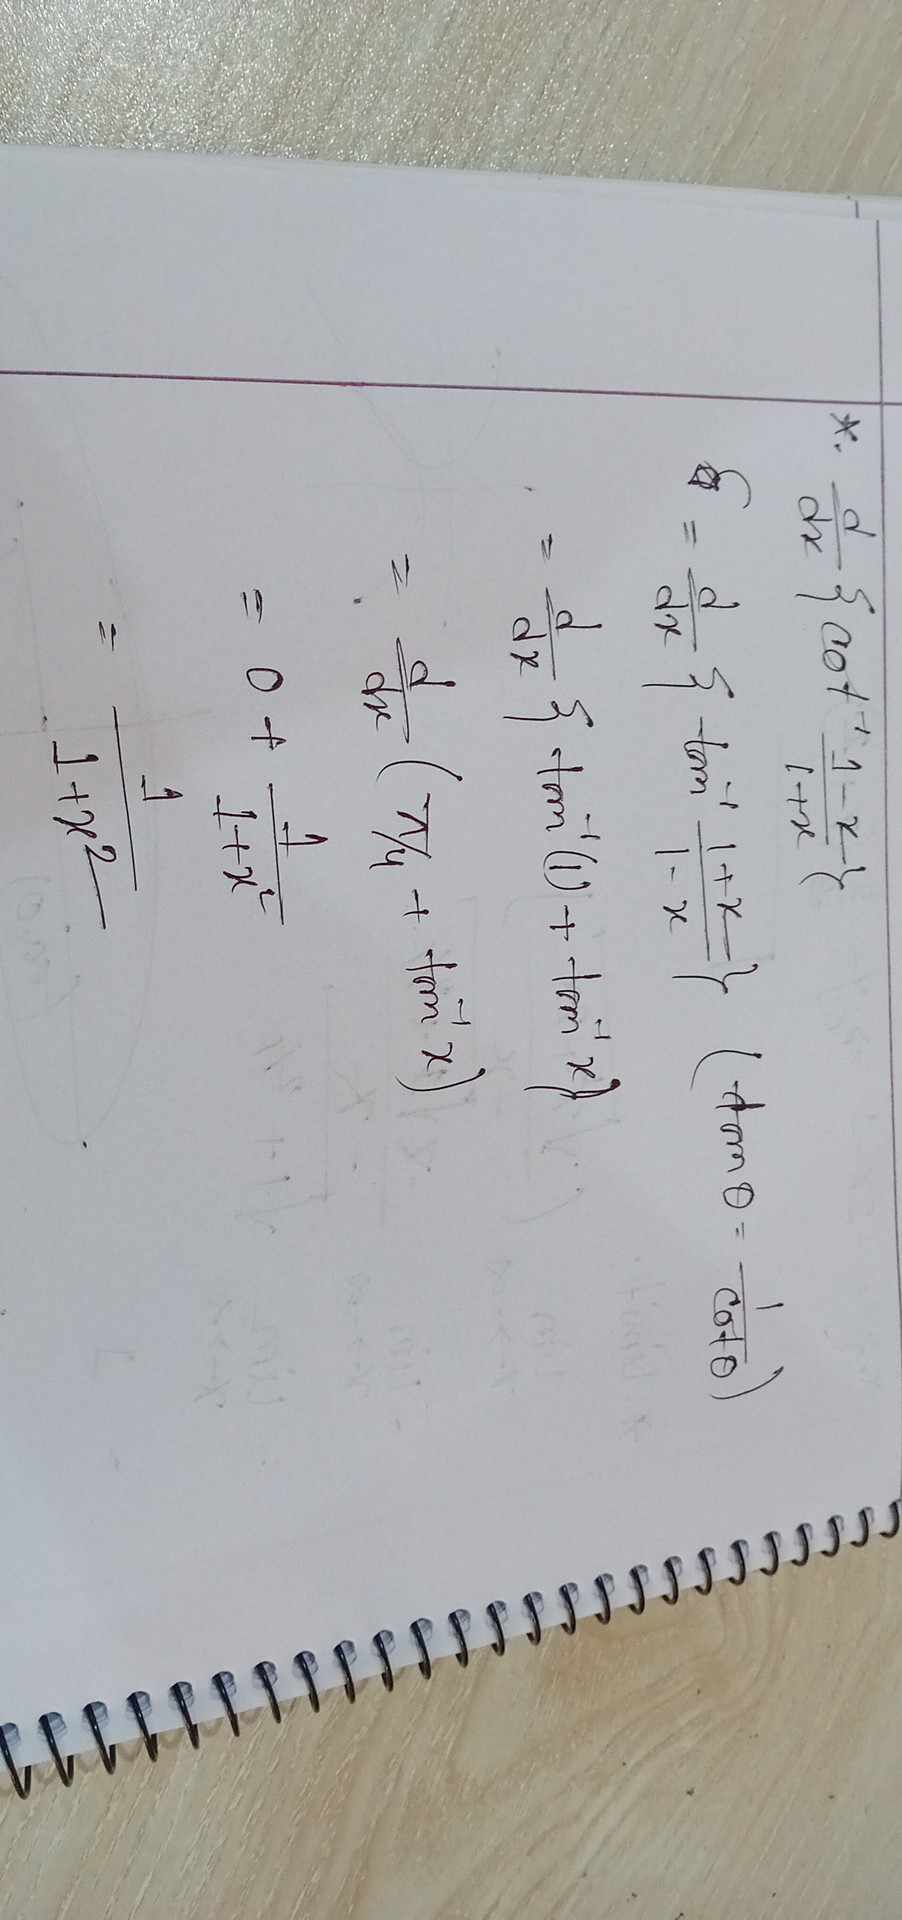 *. d/dx {cot⁻¹ (1-x)/(1+x)}
= d/dx {tan⁻¹ (1+x)/(1-x)} (tanθ = 1/cotθ)
= d/dx {tan⁻¹(1) + tan⁻¹x}
= d/dx (π/4 + tan⁻¹x)
= 0 + 1/(1+x²)
= 1/(1+x²)